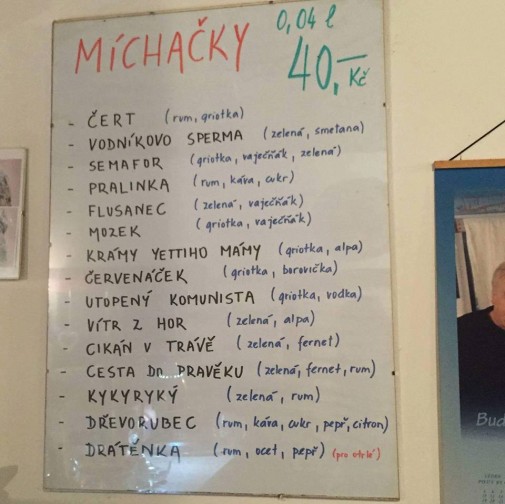 MÍCHAČKY
0,04 l
40,– Kč
- ČERT (rum, griotka)
- VODNÍKOVO SPERMA (zelená, smetana)
- SEMAFOR (griotka, vaječňák, zelená)
- PRALINKA (rum, káva, cukr)
- FLUSANEC (zelená, vaječňák)
- MOZEK (griotka, vaječňák)
- KRÁMY YETTIHO MÁMY (griotka, alpa)
- ČERVENÁČEK (griotka, borovička)
- UTOPENÝ KOMUNISTA (griotka, vodka)
- VÍTR Z HOR (zelená, alpa)
- CIKÁN V TRÁVĚ (zelená, fernet)
- CESTA DO PRAVĚKU (zelená, fernet, rum)
- KYKYRYKÝ (zelená, rum)
- DŘEVORUBEC (rum, káva, cukr, pepř, citron)
- DRÁTĚNKA (rum, ocet, pepř) (pro otrlé)
Bud